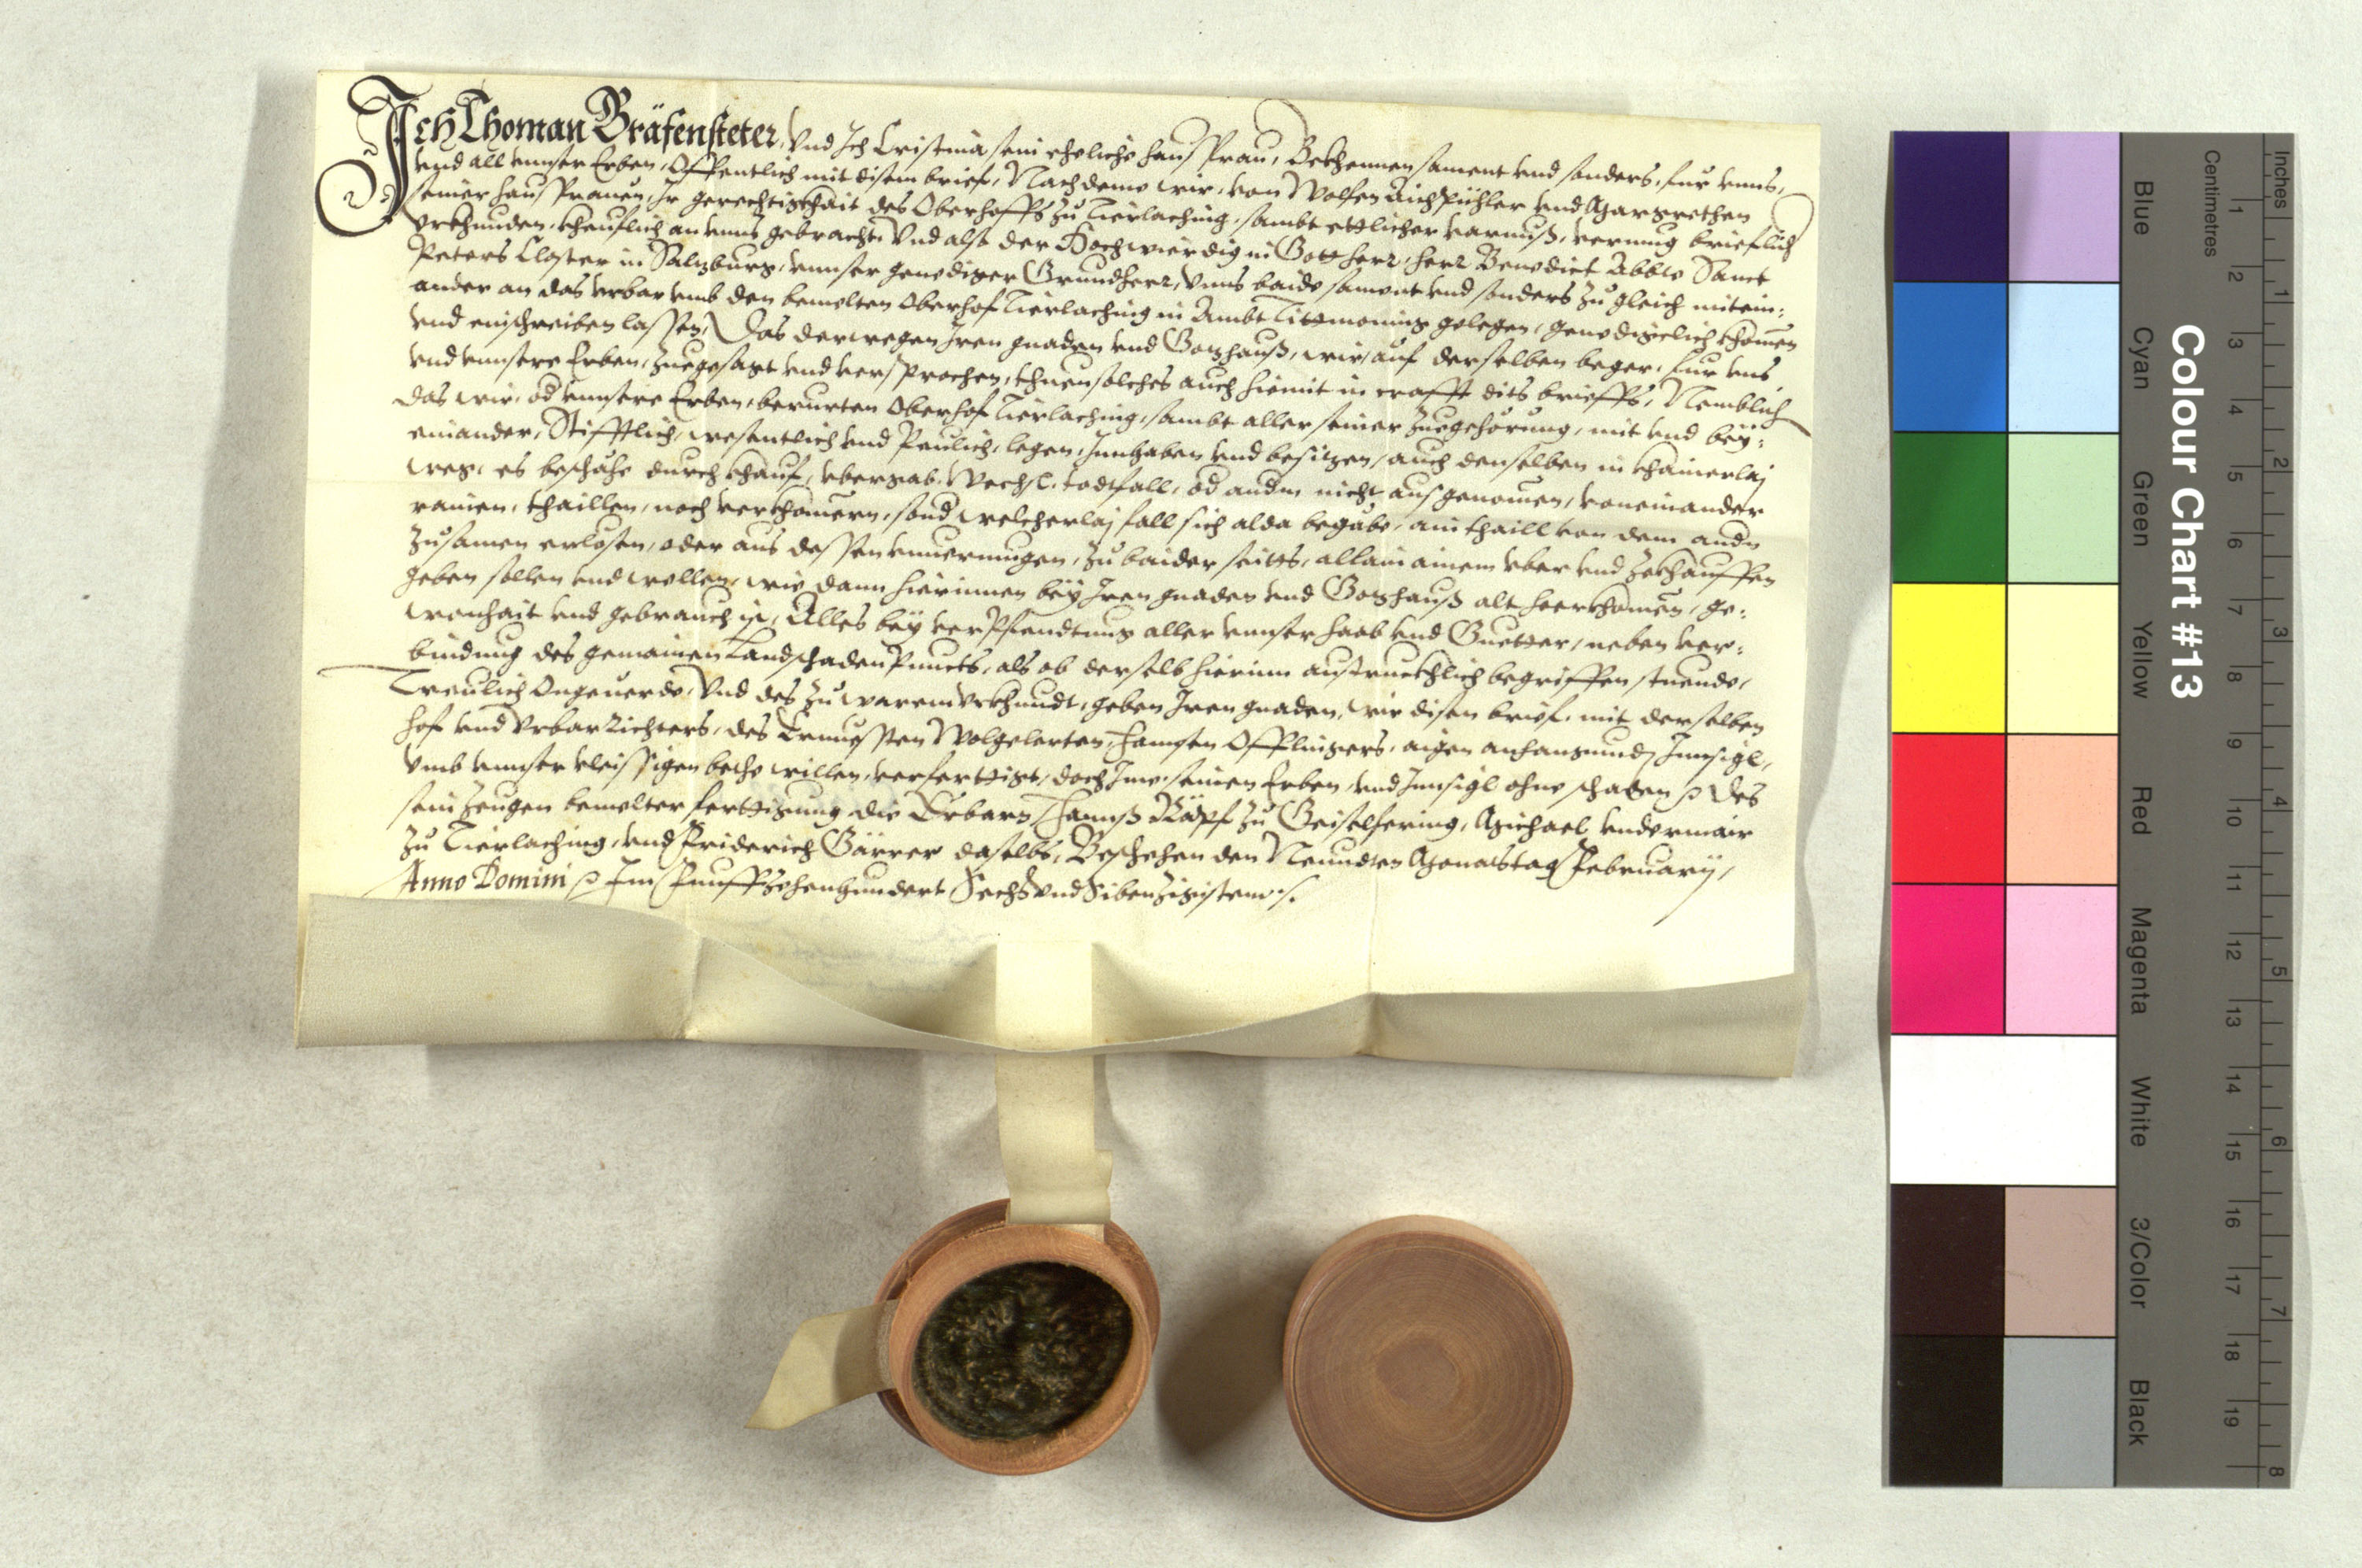 Ich Thoman Gräfensteter, Vnd Ich Cristina sein eheliche hausfrau, Bekhennen sament vnd sonders, fur vnns,
vnd all vnnser Erben, Offentlich mit disem brief, Nachdeme wir, von Wolfen Aichpühler vnd Margrethen
seiner hausfrauen, Ir gerechtigkhait des Oberhoffs zu Tierlaching, sambt ettlicher varnuß, vermug brieflich
Vrkhunden, kheuflich an vnns gebracht, Vnd alß der Hochwierdig in Gott herr, herr Benedict Abbte Sanct
Peters Closter in Salzburg, vnnser genediger Grundherr, Vnns baide sament vnd sonders zu gleich mitein:
ander an das vrbar vmb den bemelten Oberhof Tierlaching in Ambt Tittmoning gelegen, genedigelich khomen
vnd einschreiben lassen, Das derwegen Iren gnaden vnd Gotzhauß, wir, auf derselben beger, fur vns
vnd vnnsere Erben, zuegesagt vnd versprochen, thuen solches auch hiemit in crafft dits brieffs, Nemblich
das wir, od vnnsere Erben, berurten Oberhof Tierlaching, sambt aller seiner zuegehörung, mit vnd bey:
einander, Stifftlich, wesentlich vnd Peulich, legen, Innhaben vnd besitzen, auch denselben in khainerlaj
weg, es beschehe durch khauf, vbergab, Wechsl, todtfall, od andm nicht ausgenomen, voneinander
rainen, thaillen, noch verkhomern, sond welcherlaj fall sich alda begäbe, ain thaill von dem andn
zusamen erlösen, oder aus dessen vnuermugen, zu baider seitts, allain ainem vber vnd zekhauffen
geben sollen vnd wellen, wie dann hierinnen bey Iren gnaden vnd Gotzhauß alt heerkhomen, ge:
wonhait vnd gebrauch ist, Alles bey verpfendtung aller vnnser haab vnd Guetter, neben ver:
bindung des gemainen Landschaden Puncts, als ob derselb hierinn austruckhlich begriffen stuende,
Treulich Ongeuerde, Vnd des zu warem vrkhundt, geben Iren gnaden, wir disen brief, mit derselben
hof vnd Vrbar Richters, des Ernuessten Wolgelerten, Hannsen Offlingers, aigen anhangundem Innsigl,
Vmb vnnser vleissigen bethe willen, verferttigt, doch Ime, seinen Erben, vnd Innsigl ohne schaden Des
sein Zeugen bemelter ferttigung die Erbarn Hannß Räpf zu Geiselfering, Michael vndermair
zu Tierlaching, vnd Friderich Gärrer daselbs, Beschehen den Neundten Monatstag February,
Anno Domini Im Funffzehenhundert Sechß vnd Sibenzigistem.
Colour Chart #13
Blue Cyan Green Yellow Red Magenta White 3/Color Black
Centimetres 1 2 3 4 5 6 7 8 9 10 11 12 13 14 15 16 17 18 19
Inches 1 2 3 4 5 6 7 8